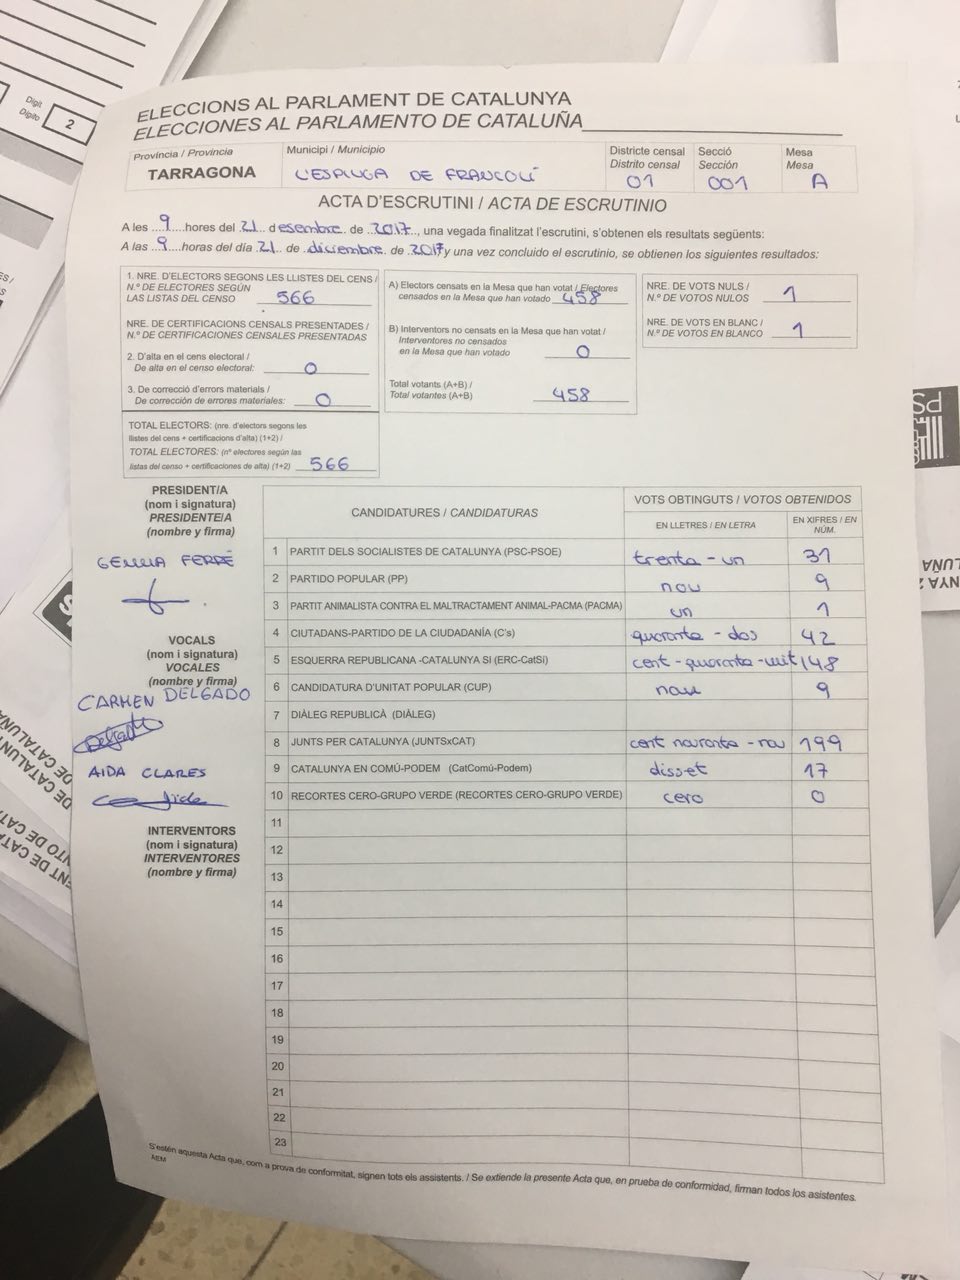 Dígit
Dígito
2
ELECCIONS AL PARLAMENT DE CATALUNYA
ELECCIONES AL PARLAMENTO DE CATALUÑA
Província / Provincia
TARRAGONA
Municipi / Municipio
L'ESPLUGA DE FRANCOLÍ
Districte censal
Distrito censal
01
Secció
Sección
001
Mesa
Mesa
A
ACTA D'ESCRUTINI / ACTA DE ESCRUTINIO
A les 9 hores del 21 desembre de 2017, una vegada finalitzat l'escrutini, s'obtenen els resultats següents:
A las 9 horas del día 21 de diciembre de 2017 y una vez concluido el escrutinio, se obtienen los siguientes resultados:
1. NRE. D'ELECTORS SEGONS LES LLISTES DEL CENS /
N.º DE ELECTORES SEGÚN
LAS LISTAS DEL CENSO 566
NRE. DE CERTIFICACIONS CENSALS PRESENTADES /
N.º DE CERTIFICACIONES CENSALES PRESENTADAS
2. D'alta en el cens electoral /
De alta en el censo electoral: 0
3. De correcció d'errors materials /
De corrección de errores materiales: 0
TOTAL ELECTORS: (nre. d'electors segons les
llistes del cens + certificacions d'alta) (1+2) /
TOTAL ELECTORES: (nº electores según las
listas del censo + certificaciones de alta) (1+2) 566
A) Electors censats en la Mesa que han votat / Electores
censados en la Mesa que han votado 458
B) Interventors no censats en la Mesa que han votat /
Interventores no censados
en la Mesa que han votado 0
Total votants (A+B) /
Total votantes (A+B) 458
NRE. DE VOTS NULS /
N.º DE VOTOS NULOS 1
NRE. DE VOTS EN BLANC /
N.º DE VOTOS EN BLANCO 1
PRESIDENT/A
(nom i signatura)
PRESIDENTE/A
(nombre y firma)
GEMMA FERRÉ
VOCALS
(nom i signatura)
VOCALES
(nombre y firma)
CARMEN DELGADO
AIDA CLARES
INTERVENTORS
(nom i signatura)
INTERVENTORES
(nombre y firma)
CANDIDATURES / CANDIDATURAS
VOTS OBTINGUTS / VOTOS OBTENIDOS
EN LLETRES / EN LETRA
EN XIFRES / EN NÚM.
1 PARTIT DELS SOCIALISTES DE CATALUNYA (PSC-PSOE) trenta-un 31
2 PARTIDO POPULAR (PP) nou 9
3 PARTIT ANIMALISTA CONTRA EL MALTRACTAMENT ANIMAL-PACMA (PACMA) un 1
4 CIUTADANS-PARTIDO DE LA CIUDADANÍA (C's) quaranta-dos 42
5 ESQUERRA REPUBLICANA -CATALUNYA SÍ (ERC-CatSí) cent-quaranta-vuit 148
6 CANDIDATURA D'UNITAT POPULAR (CUP) nou 9
7 DIÀLEG REPUBLICÀ (DIÀLEG)
8 JUNTS PER CATALUNYA (JUNTSxCAT) cent noranta-nou 199
9 CATALUNYA EN COMÚ-PODEM (CatComú-Podem) disset 17
10 RECORTES CERO-GRUPO VERDE (RECORTES CERO-GRUPO VERDE) cero 0
11
12
13
14
15
16
17
18
19
20
21
22
23
S'estén aquesta Acta que, com a prova de conformitat, signen tots els assistents. / Se extiende la presente Acta que, en prueba de conformidad, firman todos los asistentes.